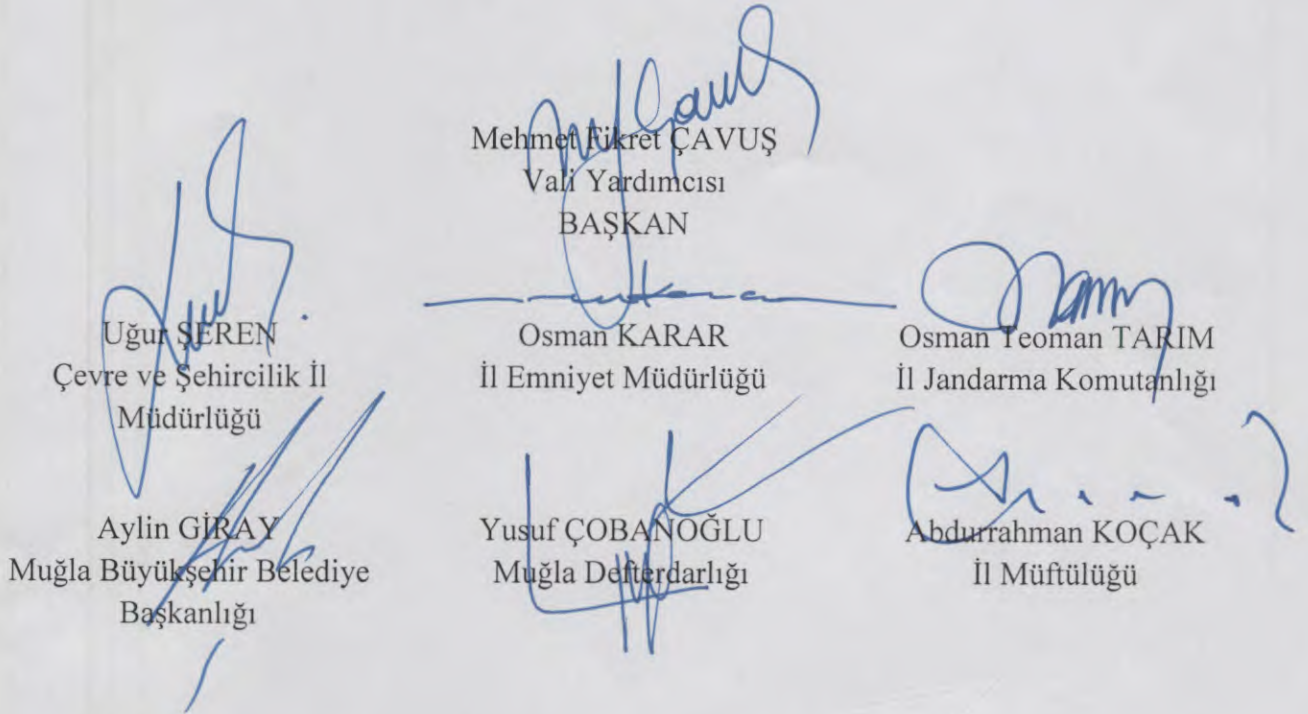 Mehmet Fikret ÇAVUŞ
Vali Yardımcısı
BAŞKAN
Uğur ŞEREN
Çevre ve Şehircilik İl
Müdürlüğü
Osman KARAR
İl Emniyet Müdürlüğü
Osman Yeoman TARIM
İl Jandarma Komutanlığı
Aylin GİRAY
Muğla Büyükşehir Belediye
Başkanlığı
Yusuf ÇOBANOĞLU
Muğla Defterdarlığı
Abdurrahman KOÇAK
İl Müftülüğü